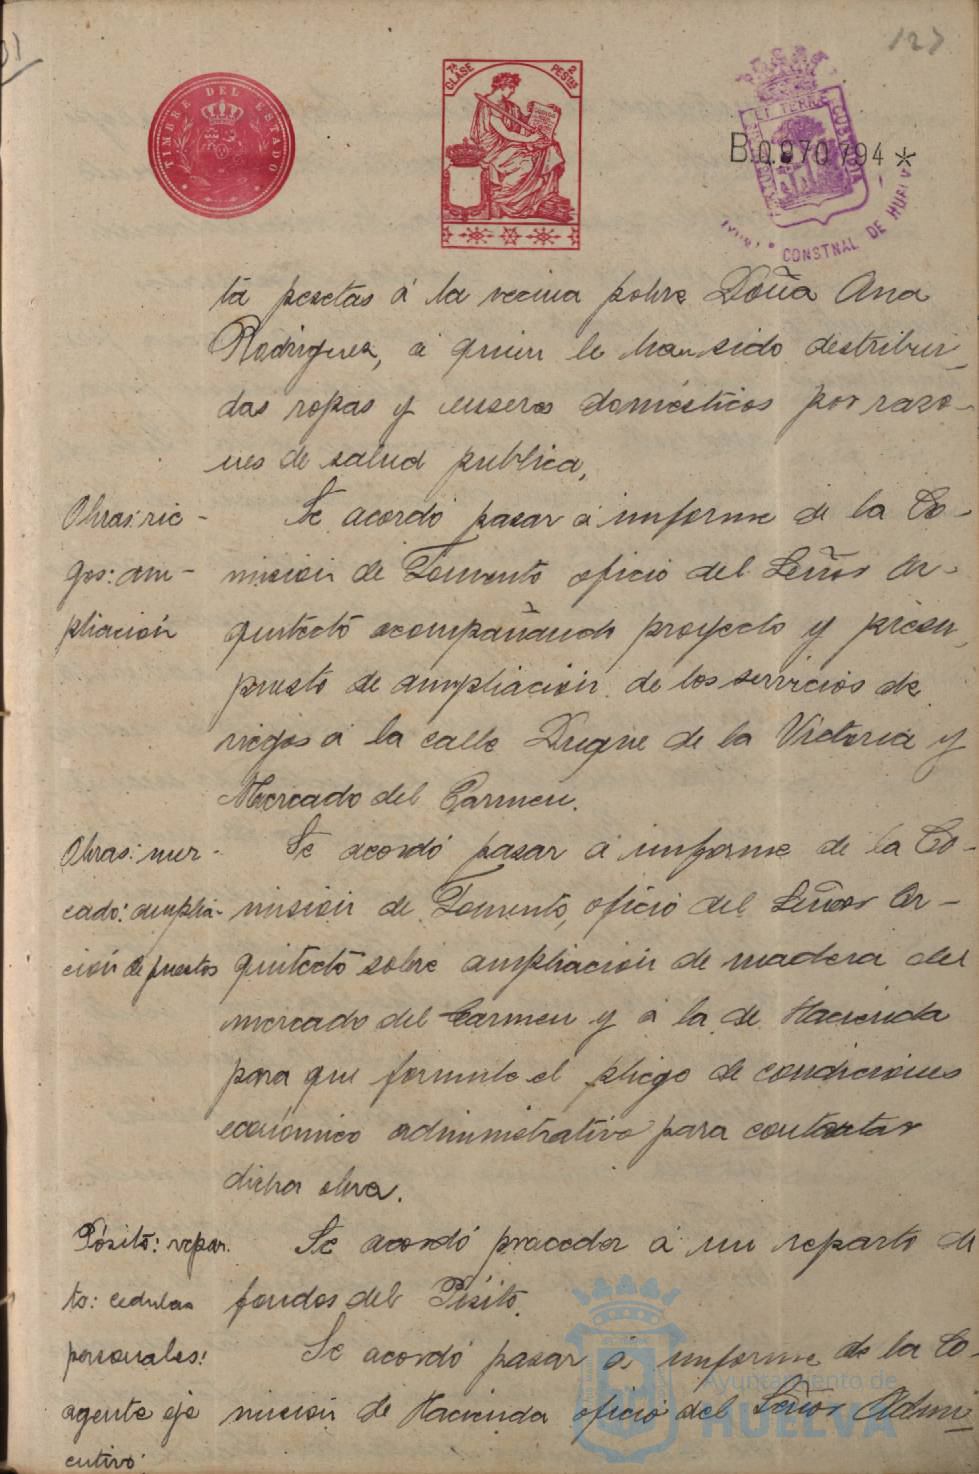 127
TIMBRE DEL ESTADO
7ª CLASE 2 PESTAS
B.0.970.794 *
CONSTNAL DE HUELVA
ta pesetas á la vecina pobre Doña Ana
Rodriguez, á quien le han sido destribui-
das ropas y enseres domésticos por razo-
nes de salud publica.
Obras: rie-
gos: am-
pliación
Se acordó pasar á informe de la Co-
misión de Fomento oficio del Señor Ar-
quitecto acompañando proyecto y presu-
puesto de ampliación de los servicios de
riegos á la calle Duque de la Victoria y
Mercado del Carmen.
Obras: mer-
cado: amplia-
ción de puestos
Se acordó pasar á informe de la Co-
misión de Fomento, oficio del Señor Ar-
quitecto sobre ampliación de madera del
mercado del Carmen y á la de Hacienda
para que formule el pliego de condiciones
económico administrativo para contratar
dicha obra.
Pósito: repar-
to: cedulas
personales:
agente eje
cutivo.
Se acordó proceder á un reparto de
fondos del Pósito.
Se acordó pasar á informe de la Co-
misión de Hacienda oficio del Señor Admi
Ayuntamiento de
HUELVA